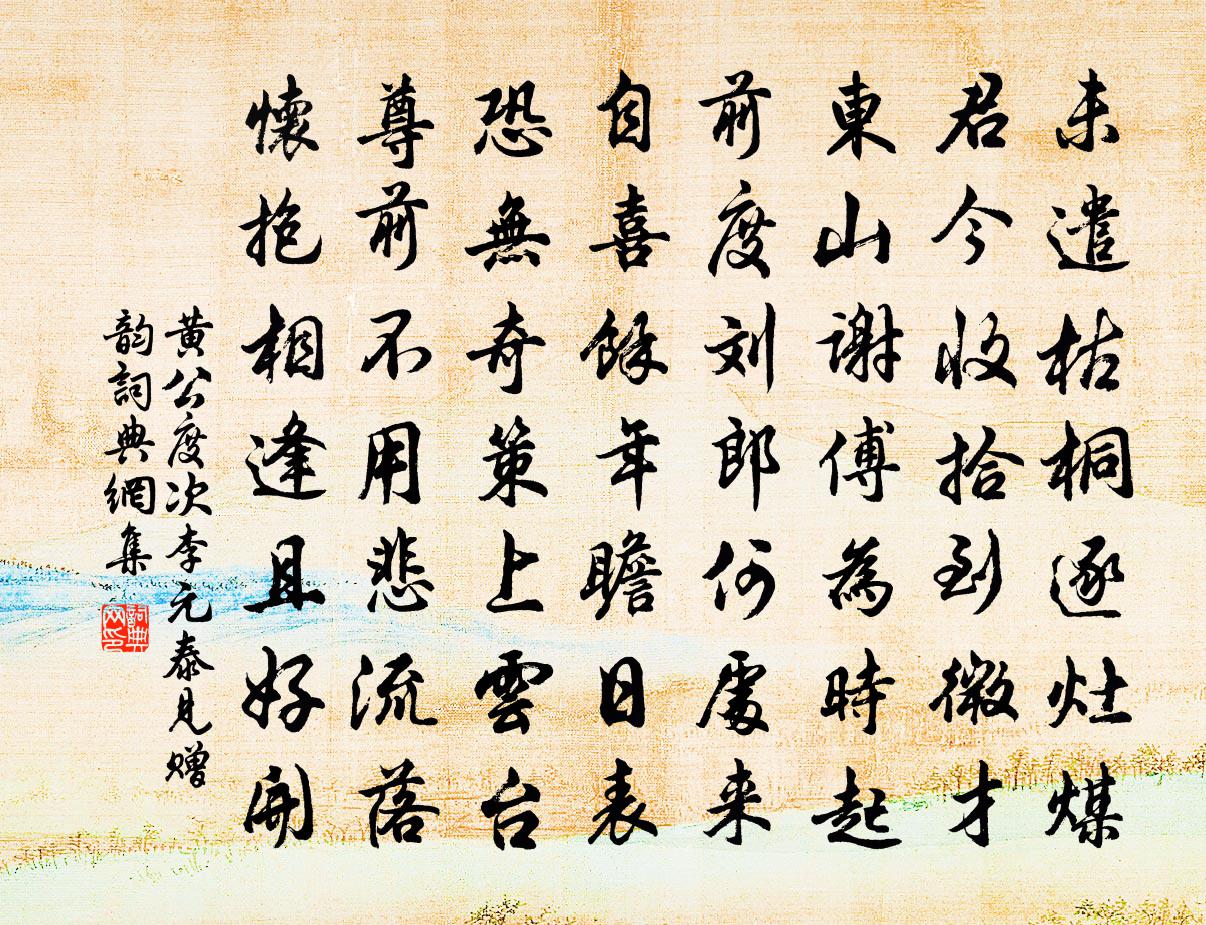 未遣枯桐逐灶煤
君今收拾到微才
東山謝傅為時起
前度刘郎何處来
自喜餘年瞻日表
恐無奇策上雲台
尊前不用悲流落
懷抱相逢且好開
黄公度次李元泰見赠
韵詞典網集
詞典网印